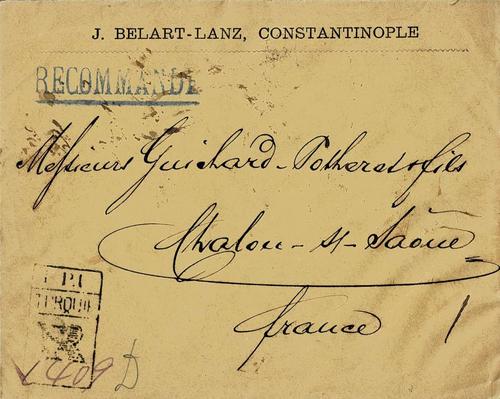 J. BELART-LANZ, CONSTANTINOPLE
RECOMMANDÉ
Messieurs Guichard-Potheret & fils
Chalon-s/-Saône
France
TURQUIE
1409 D